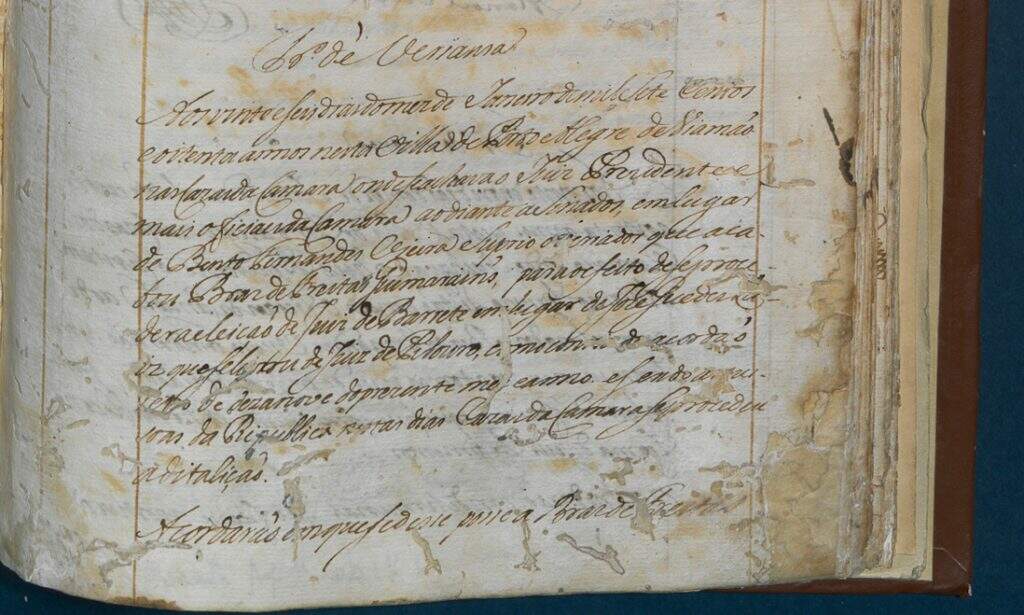 Tr.º de Veriansa
Aos vinte e seis dias do mes de Janeiro de mil e sete Centos
e oitenta annos nesta Villa de Porto Alegre de Viamão
nas Cazas da Camara onde se achavão o Juiz Prezidente e
mais officiais da Camara ao diante asinados, em lugar
de Bento Fernandes suprio o veriador q̃ e aca-
bou Bras de Freitas Guimarains, para o efeito de se proce-
der a eleicão de Juiz de Barrete em lugar de
iz que de Juiz de Pilouro, acordaõ
de dezanove do prezente mes e anno. e sendo as pes-
soas da Republica nestas ditas Cazas da Camara se procedeu
a dita
Acordarão em que se dese posse a Bras de Freitas